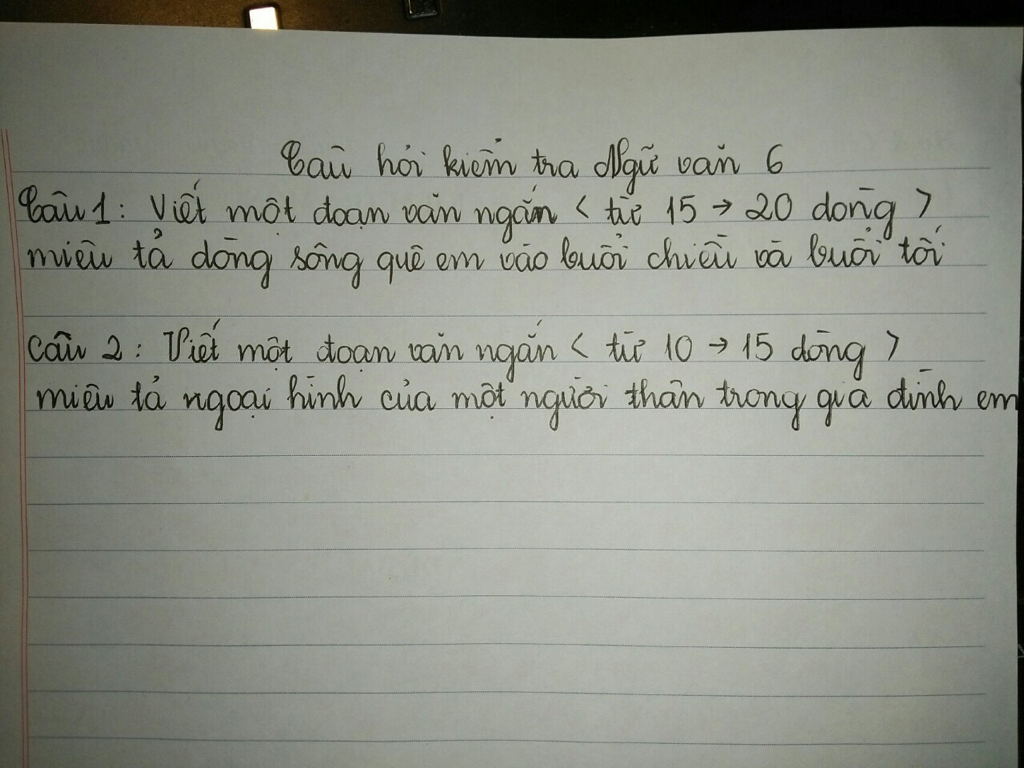 Câu hỏi kiểm tra Ngữ văn 6
Câu 1: Viết một đoạn văn ngắn < từ 15 → 20 dòng >
miêu tả dòng sông quê em vào buổi chiều và buổi tối
Câu 2: Viết một đoạn văn ngắn < từ 10 → 15 dòng >
miêu tả ngoại hình của một người thân trong gia đình em